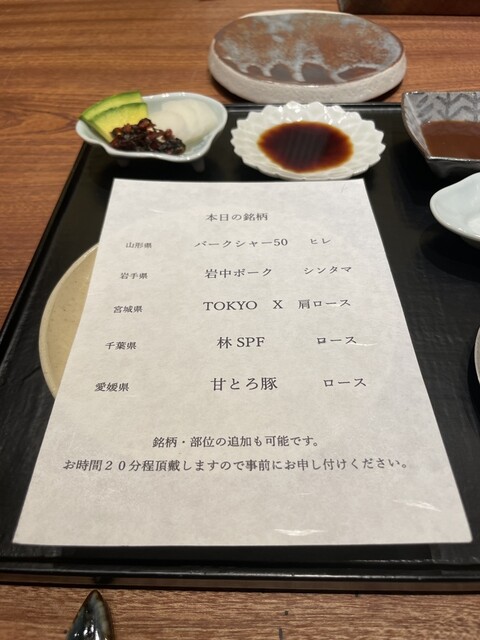 本日の銘柄
山形県 バークシャー50 ヒレ
岩手県 岩中ポーク シンタマ
宮城県 TOKYO X 肩ロース
千葉県 林SPF ロース
愛媛県 甘とろ豚 ロース
銘柄・部位の追加も可能です。
お時間20分程頂戴しますので事前にお申し付けください。